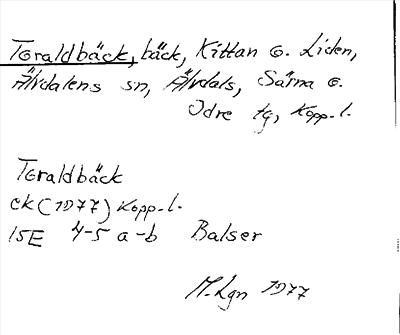 Toraldbäck, bäck, Kittan o. Liden,
Älvdalens sn, Älvdals, Särna o.
Idre tg, Kopp. l.
Toraldbäck
ek (1977) Kopp. l.
15E 4-5 a-b Balser
M. Lgn 1977